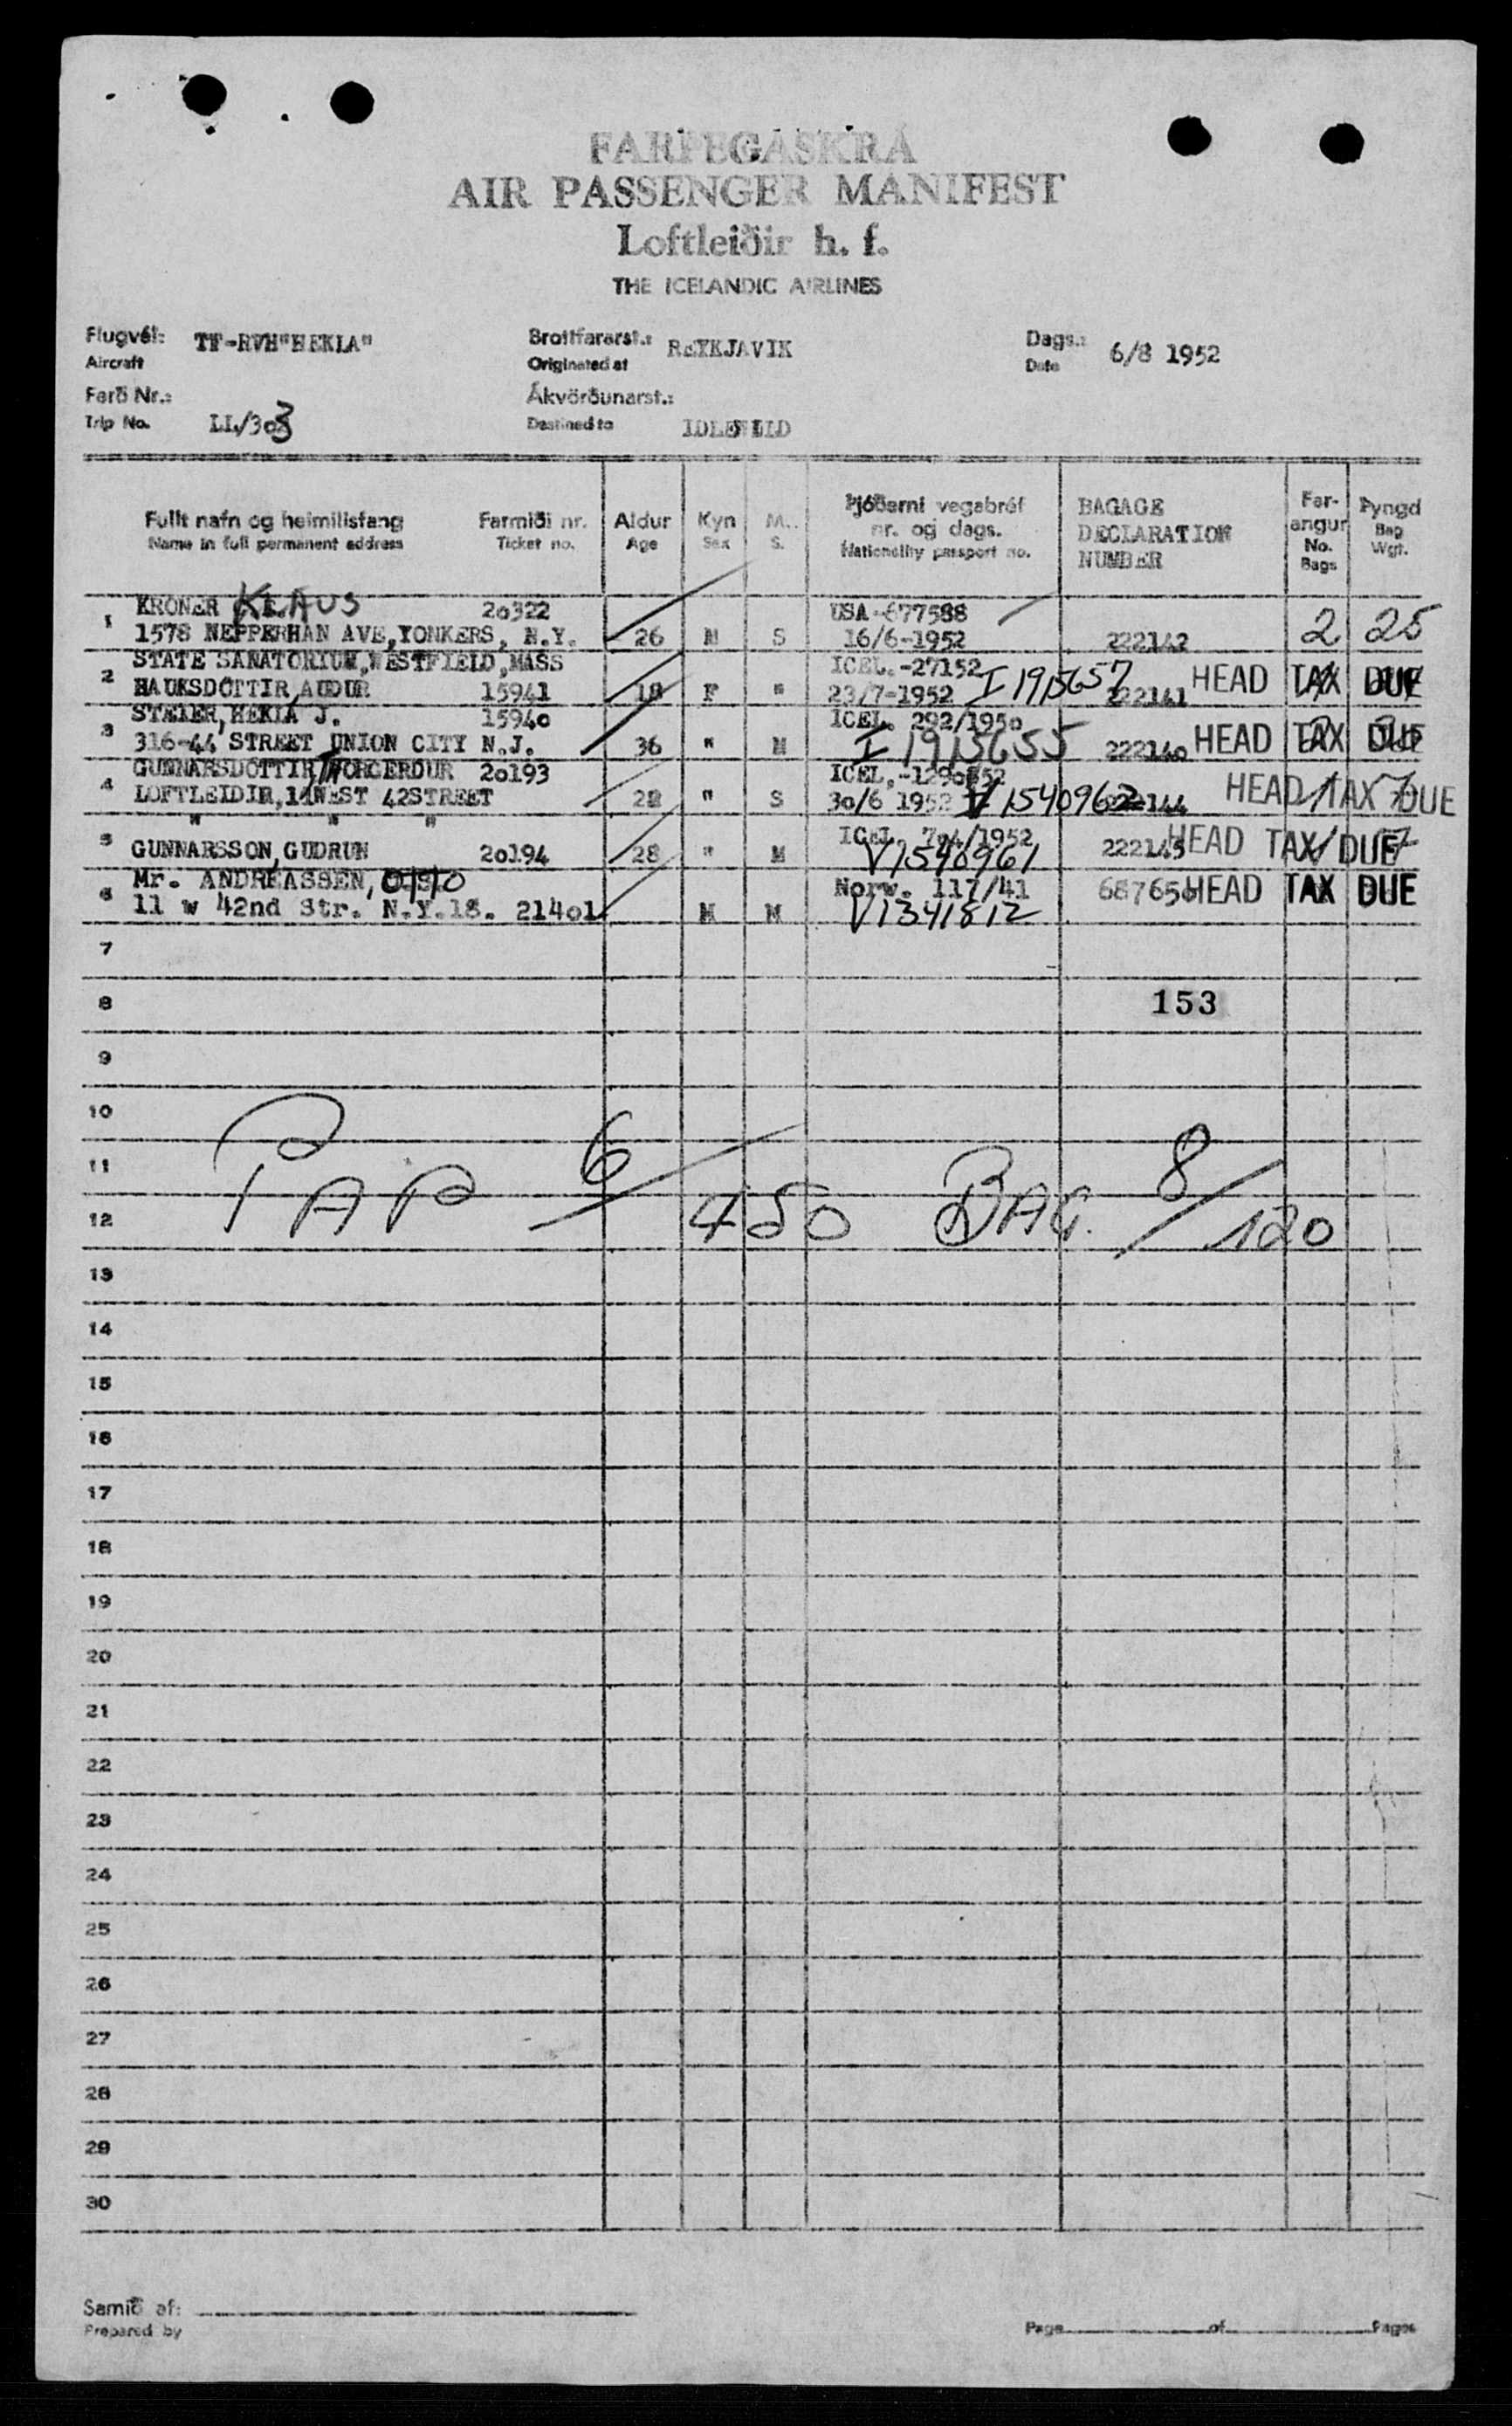 FARÞEGASKRÁ
AIR PASSENGER MANIFEST
Loftleiðir h. f.
THE ICELANDIC AIRLINES
Flugvél: TF-RVH"HEKLA" Brottfararst.: REYKJAVIK Dags.: 6/8 1952
Aircraft Originated at Date
Ferð Nr.: Ákvörðunarst.:
Trip No. LL/303 Destined to IDLEWILD
Fullt nafn og heimilisfang Farmiði nr. Aldur Kyn M. Þjóðerni vegabréf nr. og dags. BAGAGE DECLARATION NUMBER Farangur Þyngd
Name in full permanent address Ticket no. Age Sex S. Nationality passport no. No. Bags Bag Wgt.
1 KRONER KLAUS 20322 USA-677588
1578 NEPPERHAN AVE, YONKERS, N.Y. 26 M S 16/6-1952 222142 2 25
2 STATE SANATORIUM, WESTFIELD, MASS ICEL.-27152
HAUKSDOTTIR, AUDUR 15941 18 F " 23/7-1952 I 1915657 222141 HEAD TAX DUE
3 STÆLER, HEKLA J. 15940 ICEL. 292/1950
316-44 STREET UNION CITY N.J. 36 " M I 1915655 222140 HEAD TAX DUE
4 GUNNARSDOTTIR, THORGERDUR 20193 ICEL.
LOFTLEIDIR, 11WEST 42STREET 28 " S 30/6 1952 V 1540962 HEAD TAX DUE
5 " " "
GUNNARSSON, GUDRUN 20194 28 " M ICEL. 704/1952 V1540961 222143 HEAD TAX DUE
6 Mr. ANDREASSEN, OTTO Norw. 117/41 687656 HEAD TAX DUE
11 w 42nd Str. N.Y.18. 21401 M M V1341812
7
8 153
9
10
11
12 PAP 6/450 BAG. 8/120
13
14
15
16
17
18
19
20
21
22
23
24
25
26
27
28
29
30
Samið af:
Prepared by Page of Pages